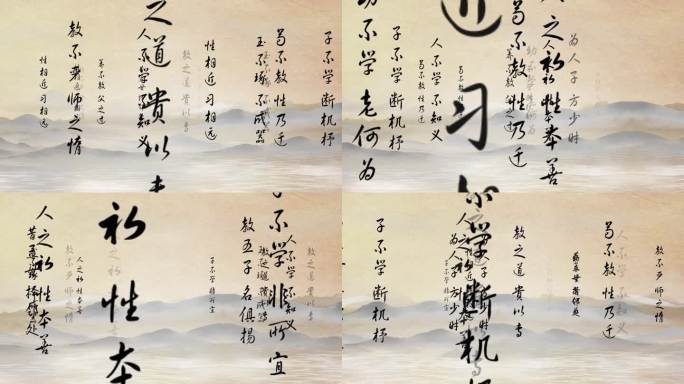 子不学断机杼
苟不教性乃迁
玉不琢不成器
性相近习相远
教之道贵以专
人不学不知义
之道贵以专
教不严师之惰
养不教父之过
性相近习相远
为人子方少时
人之初性本善
苟不教性乃迁
幼不学老何为
近习
人不学不知义
苟不教性乃迁
子不学断机杼
不学老何为
教之道贵以专
人不学不知义
子不学非所宜
教五子名俱扬
初性本
人之初性本善
教不严师之惰
昔孟母择邻处
人之初性本善
教不严师之惰
人不学不知义
苟不教性乃迁
教之道贵以专
学断机杼
为人子方少时
子不学断机杼